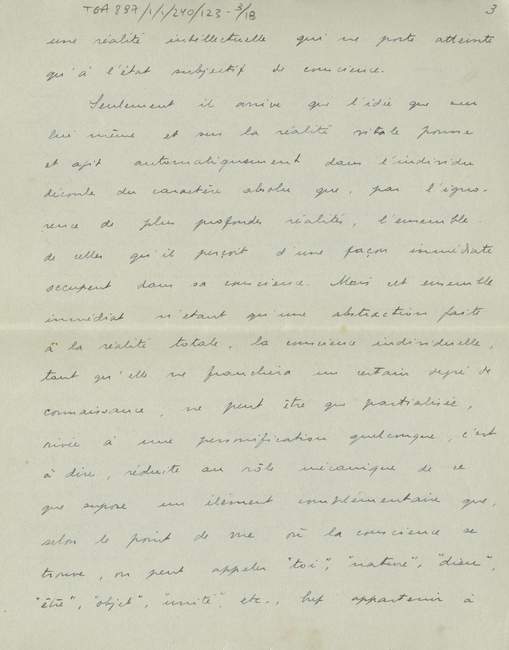 TGA 897/1/1/240/123-3/18
3
une réalité intellectuelle qui ne porte atteinte
qu'à l'état subjectif de conscience.
Seulement il arrive que l'idée que sur
lui même et sur la réalité vitale pousse
et agit automatiquement dans l'individu
découle du caractère absolu que, par l'igno-
rence de plus profondes réalités, l'ensemble
de celles qu'il perçoit d'une façon immédiate
occupent dans sa conscience. Mais cet ensemble
immédiat n'étant qu'une abstraction faite
à la réalité totale, la conscience individuelle,
tant qu'elle ne franchira un certain degré de
connaissance, ne peut être que partialisée,
rivée à une personnification quelconque, c'est
à dire, réduite au rôle mécanique de ce
que suppose un élément complémentaire que,
selon le point de vue où la conscience se
trouve, on peut appeler "toi", "nature", "dieu",
"être", "objet", "unité" etc., bref appartenir à